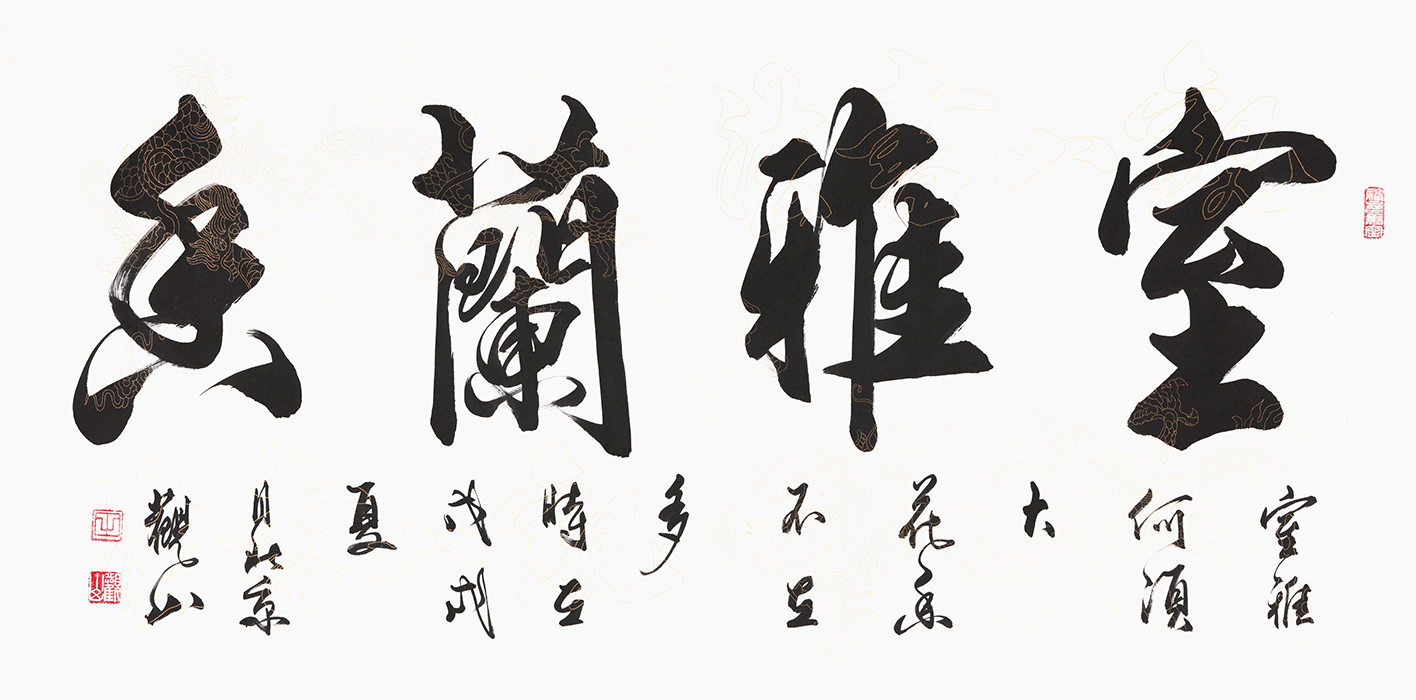 室雅蘭香
室雅
何須
大
花香
不在
多
時在
戊戌
夏
月北京
觀山
觀山